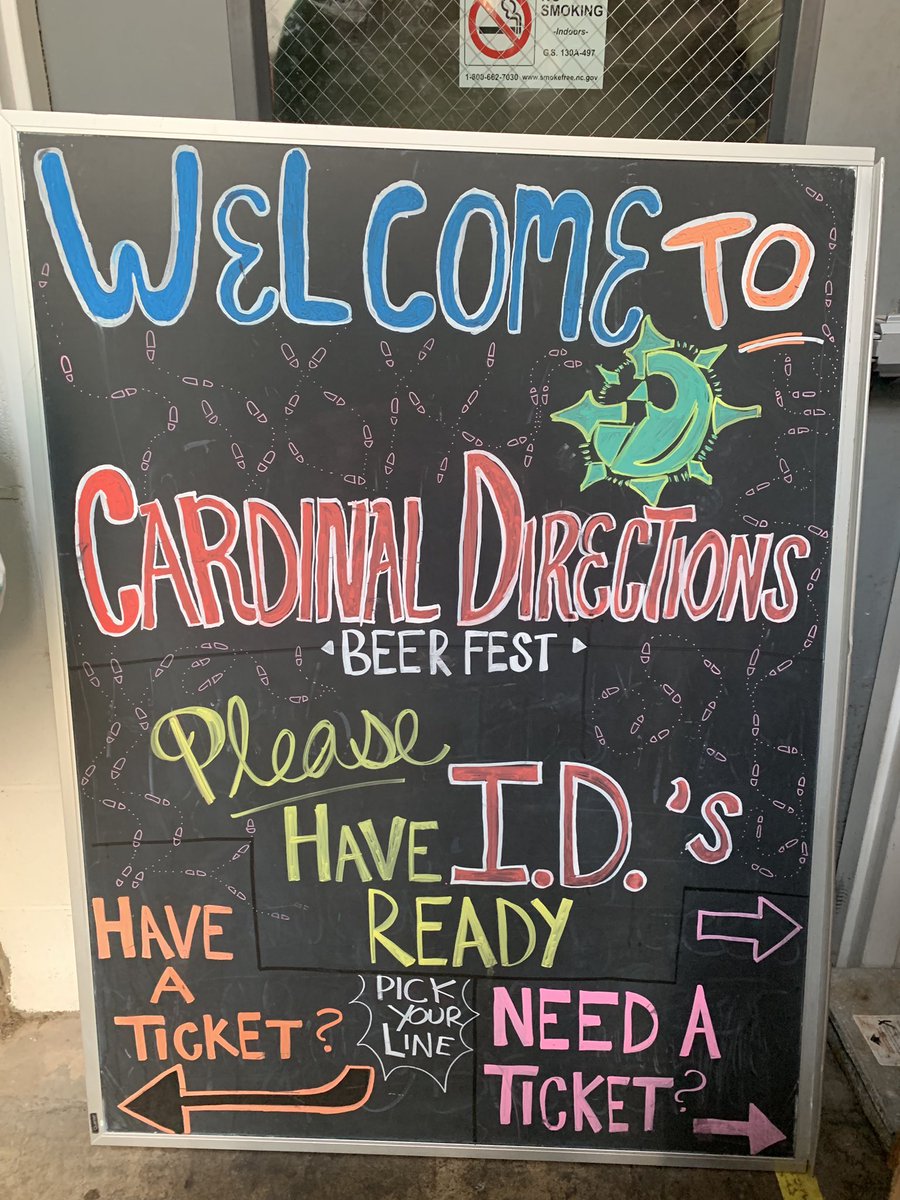 SMOKING
-Indoors-
G.S. 130A-497
1-800-662-7030 www.smokefree.nc.gov
WELCOME TO
CARDINAL DIRECTIONS
BEER FEST
Please
HAVE I.D.'s
READY
HAVE
A
TICKET?
PICK
YOUR
LINE
NEED A
TICKET?